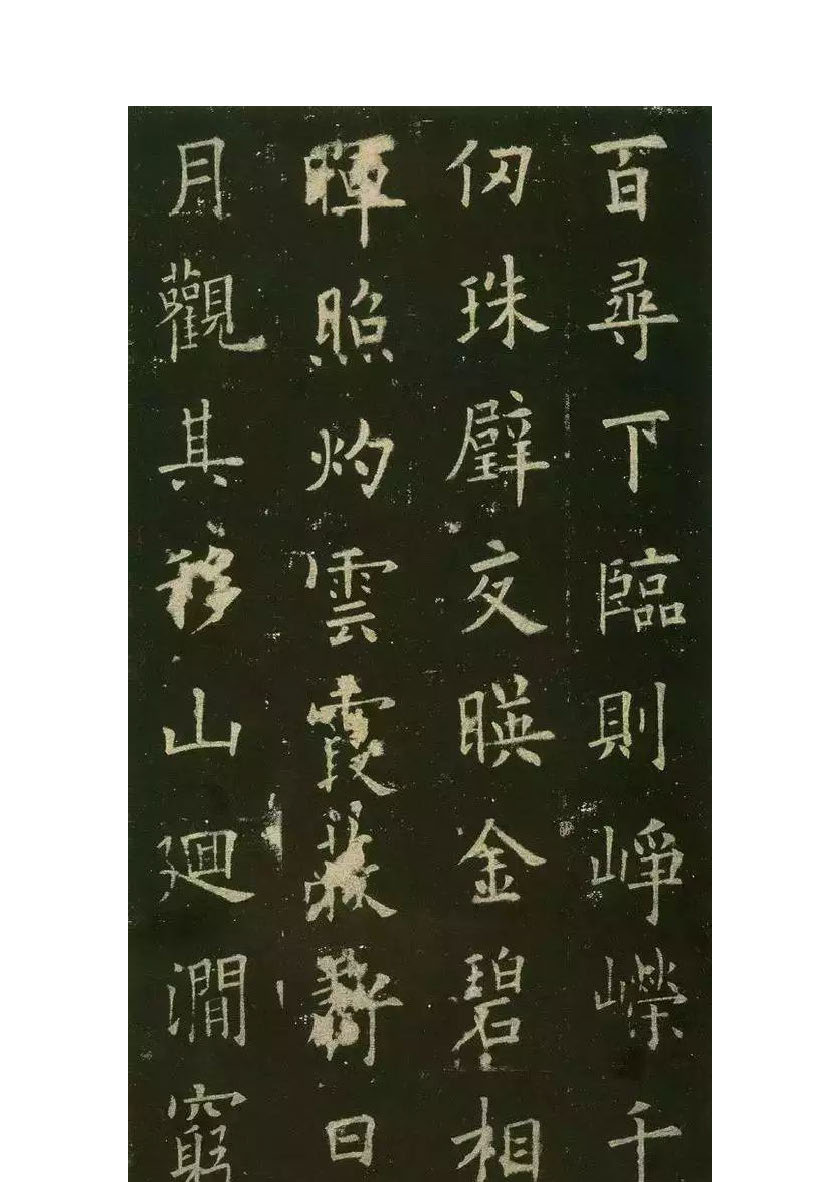 百尋下臨則崢嶸千
仞珠壁交暎金碧相
暉照灼雲霞蔽虧日
月觀其移山廻澗窮